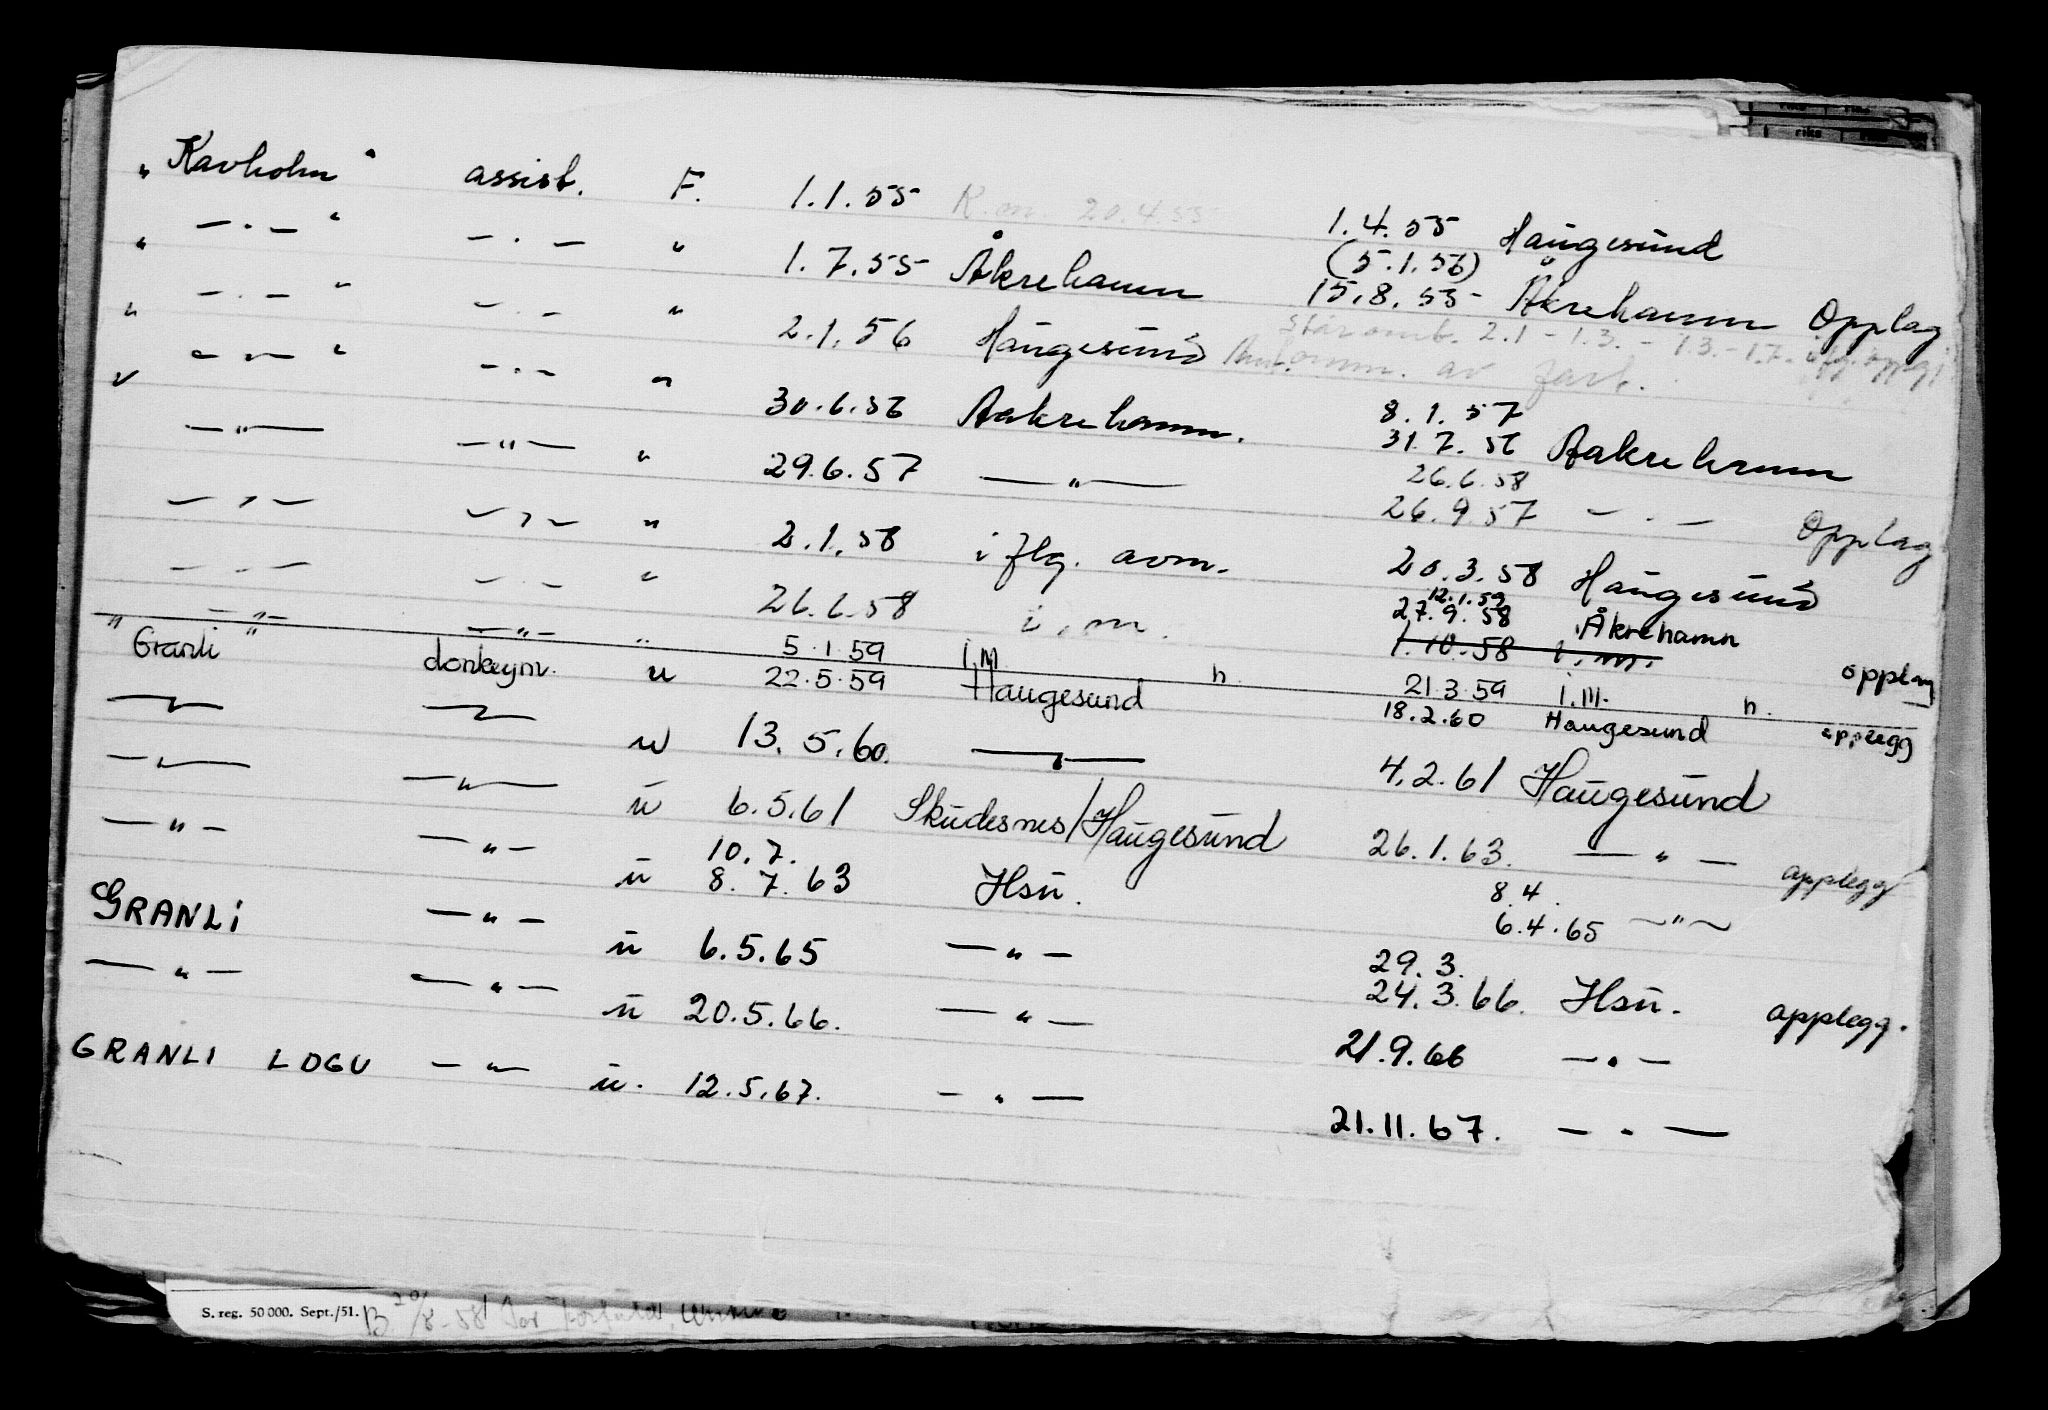 " Kavholm " assist. F. 1.1.55 K.m. 20.4.55 1.4.55 Haugesund
" — . — " — . — " 1.7.55 Åkrehamn (5.1.56) 15.8.55 Åkrehamn Opplag
" — . — " — . — " 2.1.56 Haugesund 2.1 - 1.3. - 1.3. - 1.7. av
" — " — " — . — " 30.6.56 Aakrehamn. 8.1.57 31.7.56 Aakrehamn
— " — — " — " 29.6.57 — " — 26.6.58 26.9.57 — . — Opplag
— " — — " — " 2.1.58 i flg. avm. 20.3.58 Haugesund
— . — — . — " 26.6.58 i.m. 12.1.59 27.9.58 Åkrehamn
1.10.58 i.m.
— " — — " — " 5.1.59 i.m. h. 21.3.59 i.m. h. opplag
" Granli " donkeym. u 22.5.59 Haugesund 18.2.60 Haugesund opplegg
— " — — " — u 13.5.60. — " — 4.2.61 Haugesund
— " — — " — u 6.5.61 Skudesnes/Haugesund 26.1.63. — " — opplegg
— " — — " — u 10.7. 8.7.63 Hsu. 8.4. 6.4.65 — " —
GRANLI — " — u 6.5.65 — " — 29.3. 24.3.66. Hsu. opplegg.
— " — — " — u 20.5.66. — " — 21.9.66 — " —
GRANLI LDGU — " — u. 12.5.67. — " — 21.11.67. — " —
S. reg. 50 000. Sept./51.